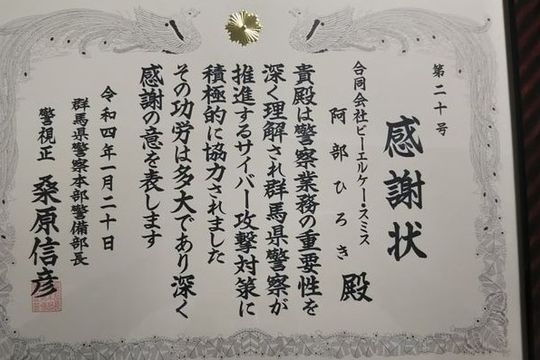 第二十号
感謝状
合同会社ビーエルケー・スミス
阿部ひろき殿
貴殿は警察業務の重要性を
深く理解され群馬県警察が
推進するサイバー攻撃対策に
積極的に協力されました
その功労は多大であり深く
感謝の意を表します
令和四年一月二十日
群馬県警察本部警備部長
警視正 桑原信彦